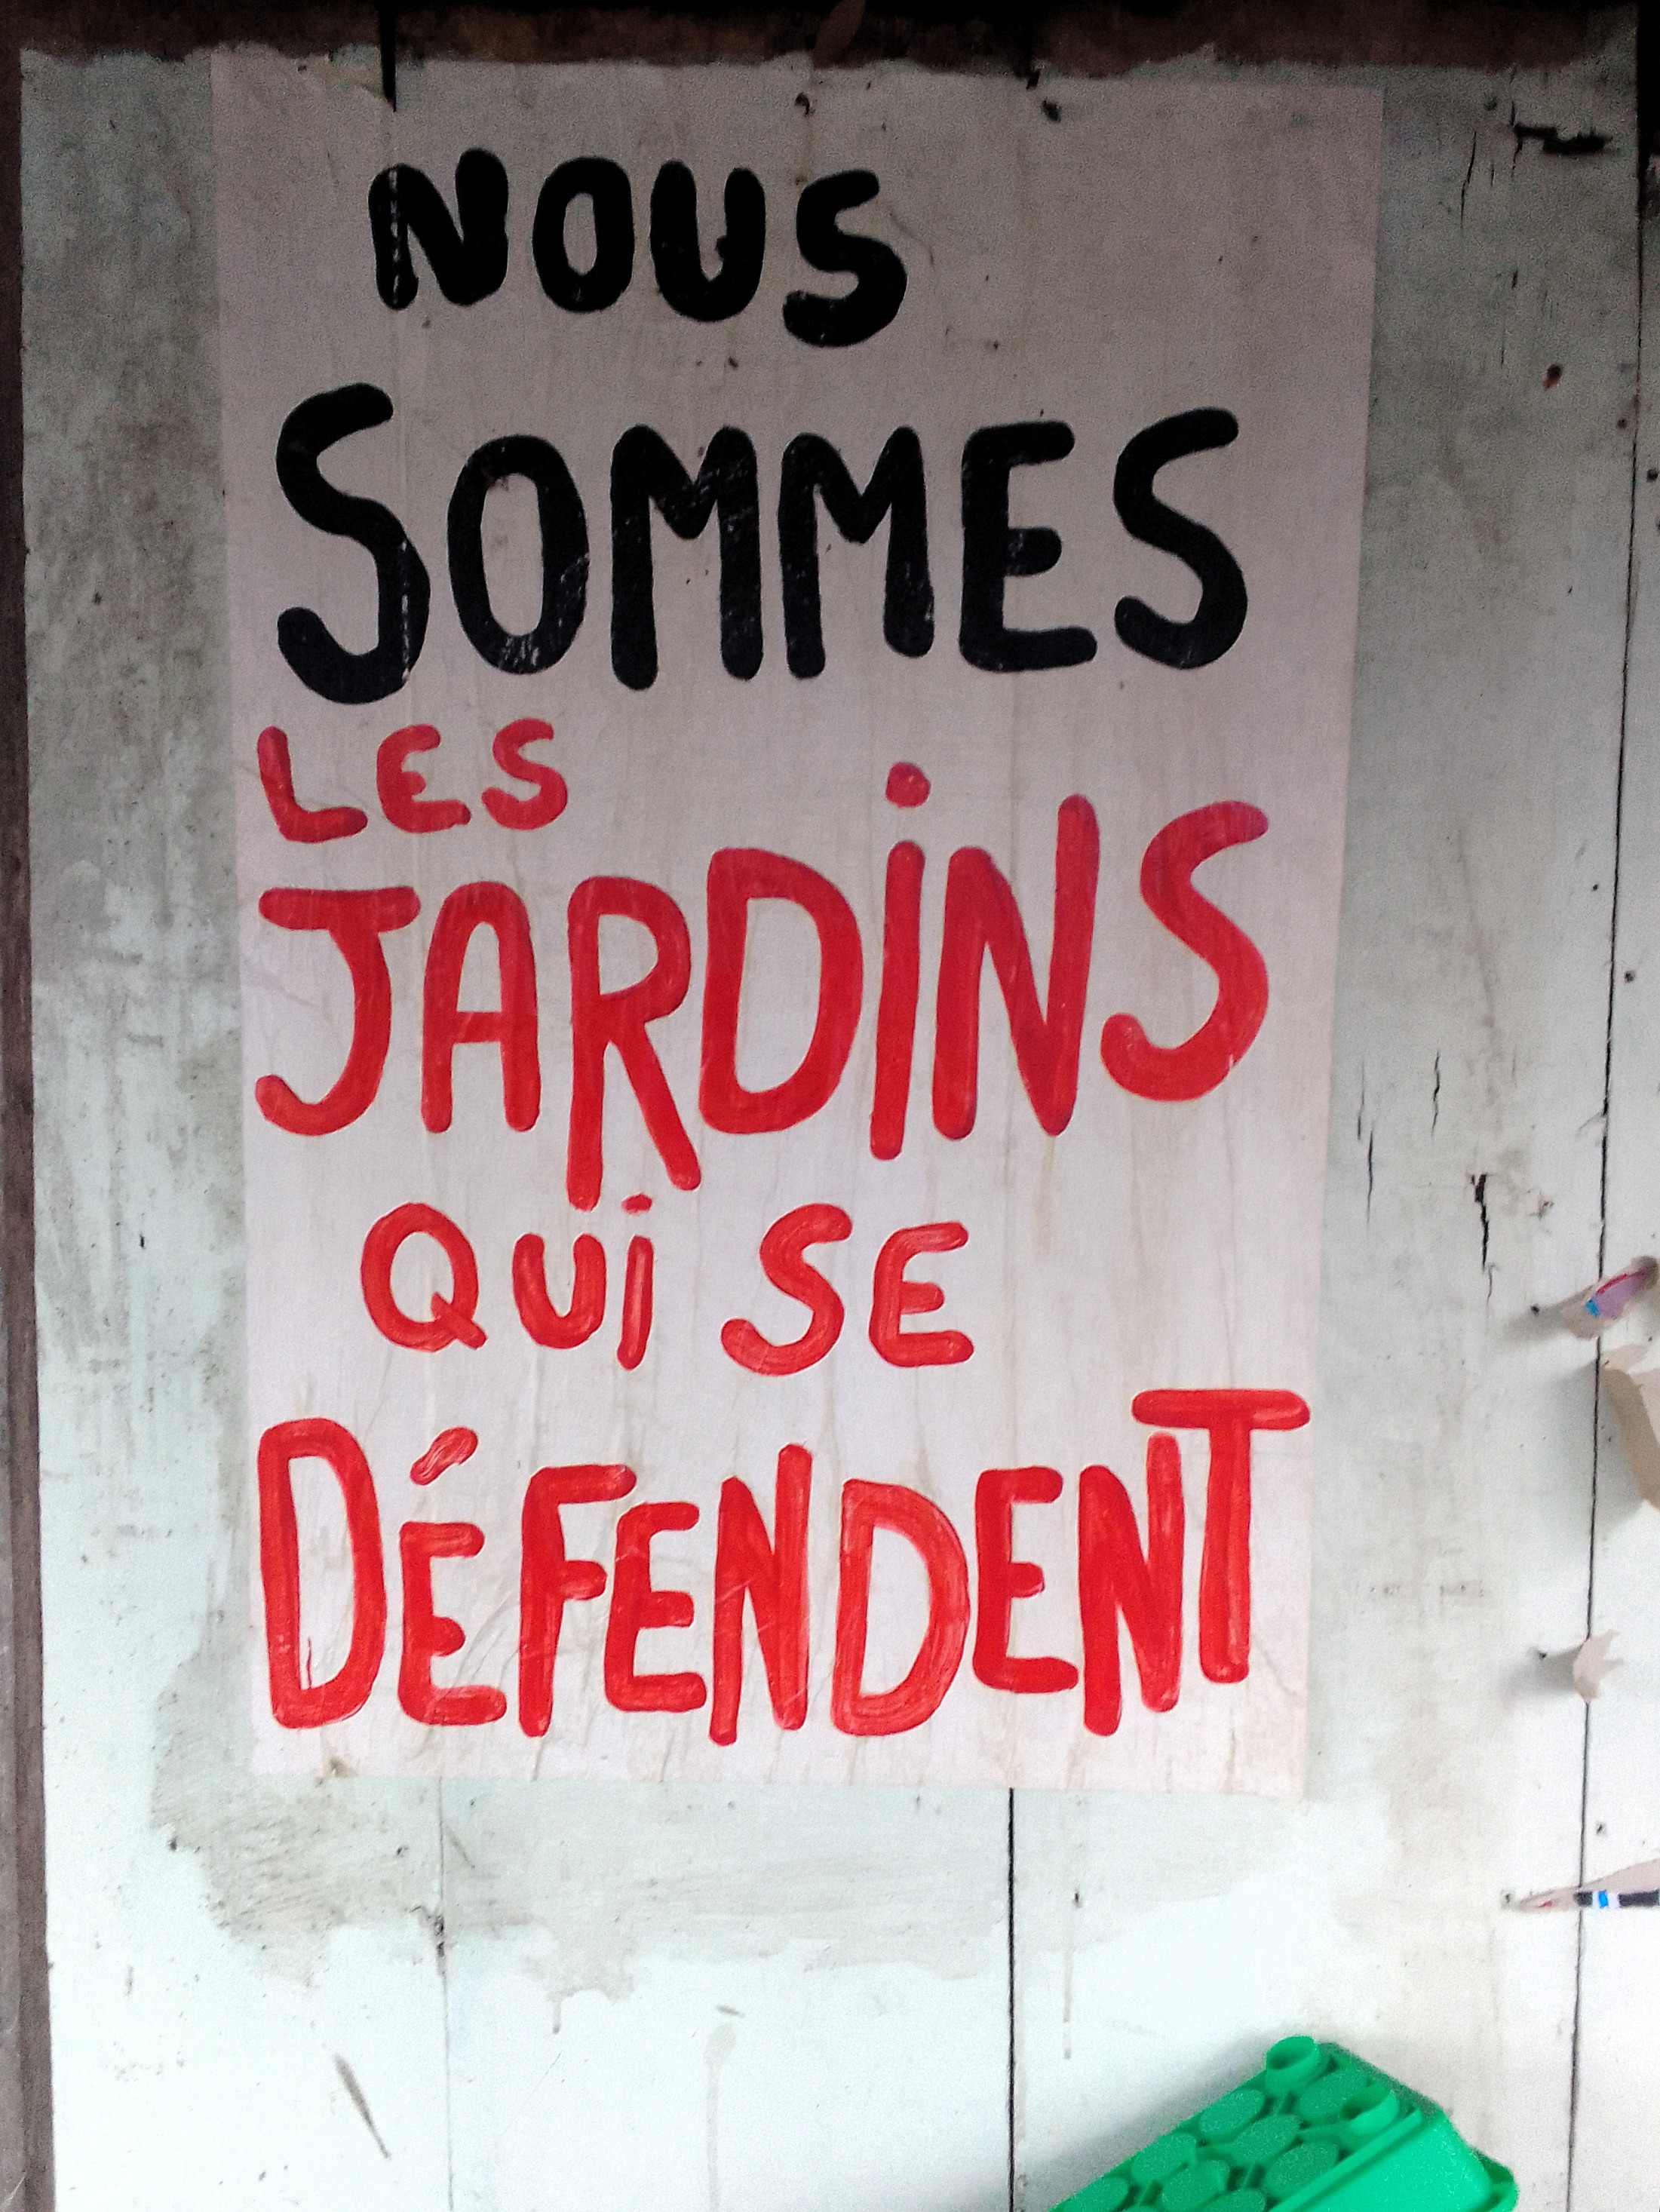 NOUS
SOMMES
LES
JARDiNS
QUi SE
DÉFENDENT